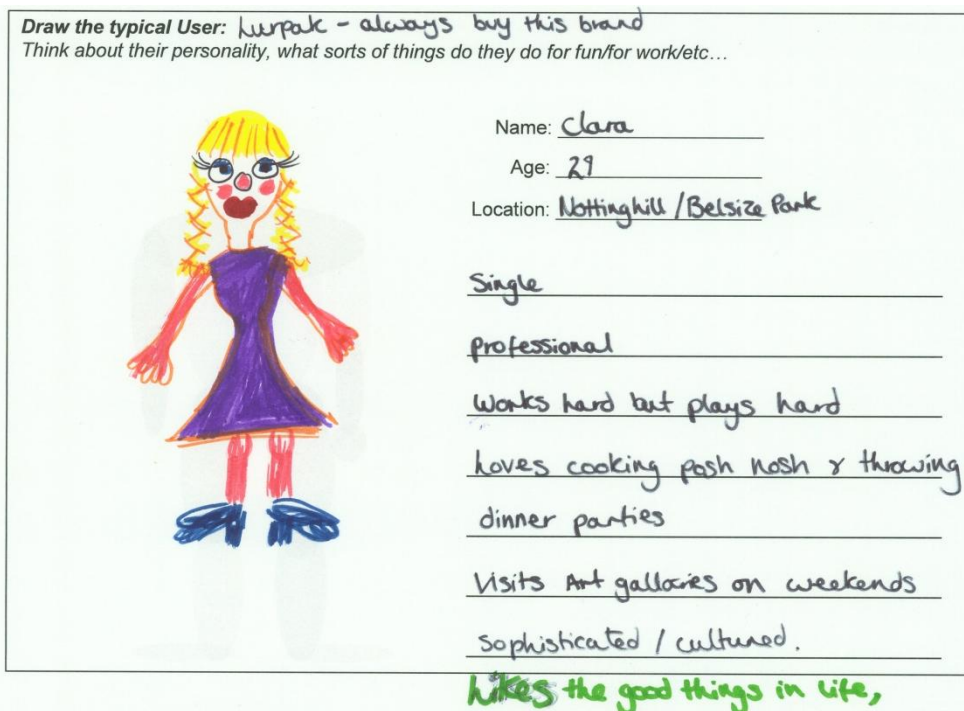 Draw the typical User: Lurpak - always buy this brand
Think about their personality, what sorts of things do they do for fun/for work/etc...
Name: Clara
Age: 29
Location: Nottinghill / Belsize Park
Single
professional
Works hard but plays hard
Loves cooking posh nosh & throwing
dinner parties
Visits Art gallaries on weekends
sophisticated / cultured.
Likes the good things in life,